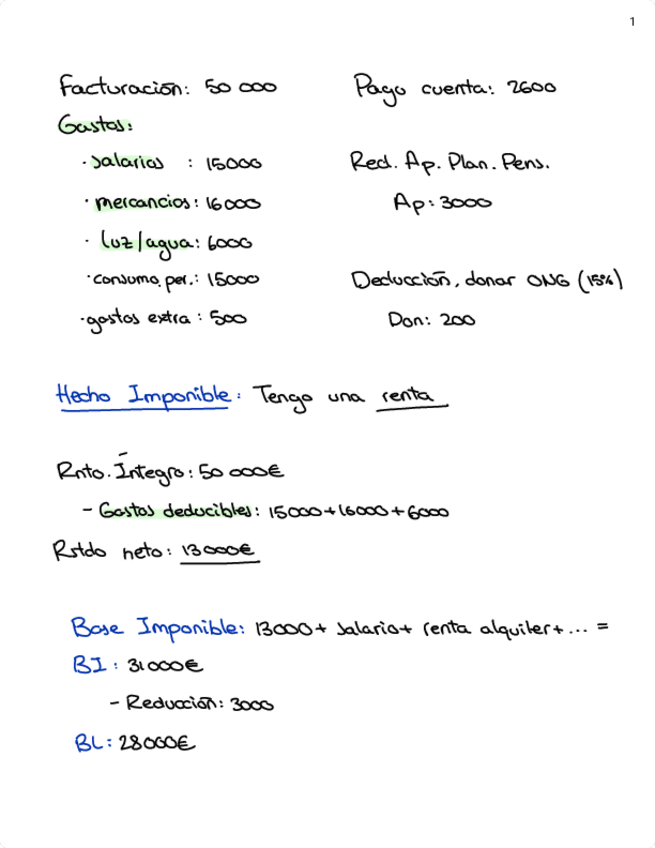 1
Facturación: 50 000
Gastos:
· salarios : 15000
· mercancios: 16000
· luz/agua: 6000
· consumo. per.: 15000
· gastos extra: 500
Pago cuenta: 2600
Red. Ap. Plan. Pens.
Ap: 3000
Deducción, donar ONG (15%)
Don: 200
Hecho Imponible: Tengo una renta
Rnto. Íntegro: 50 000€
- Gastos deducibles: 15000+16000+6000
Rstdo neto: 13000€
Base Imponible: 13000+ salario+ renta alquiler+... =
BI: 31000€
- Reducción: 3000
BL: 28000€